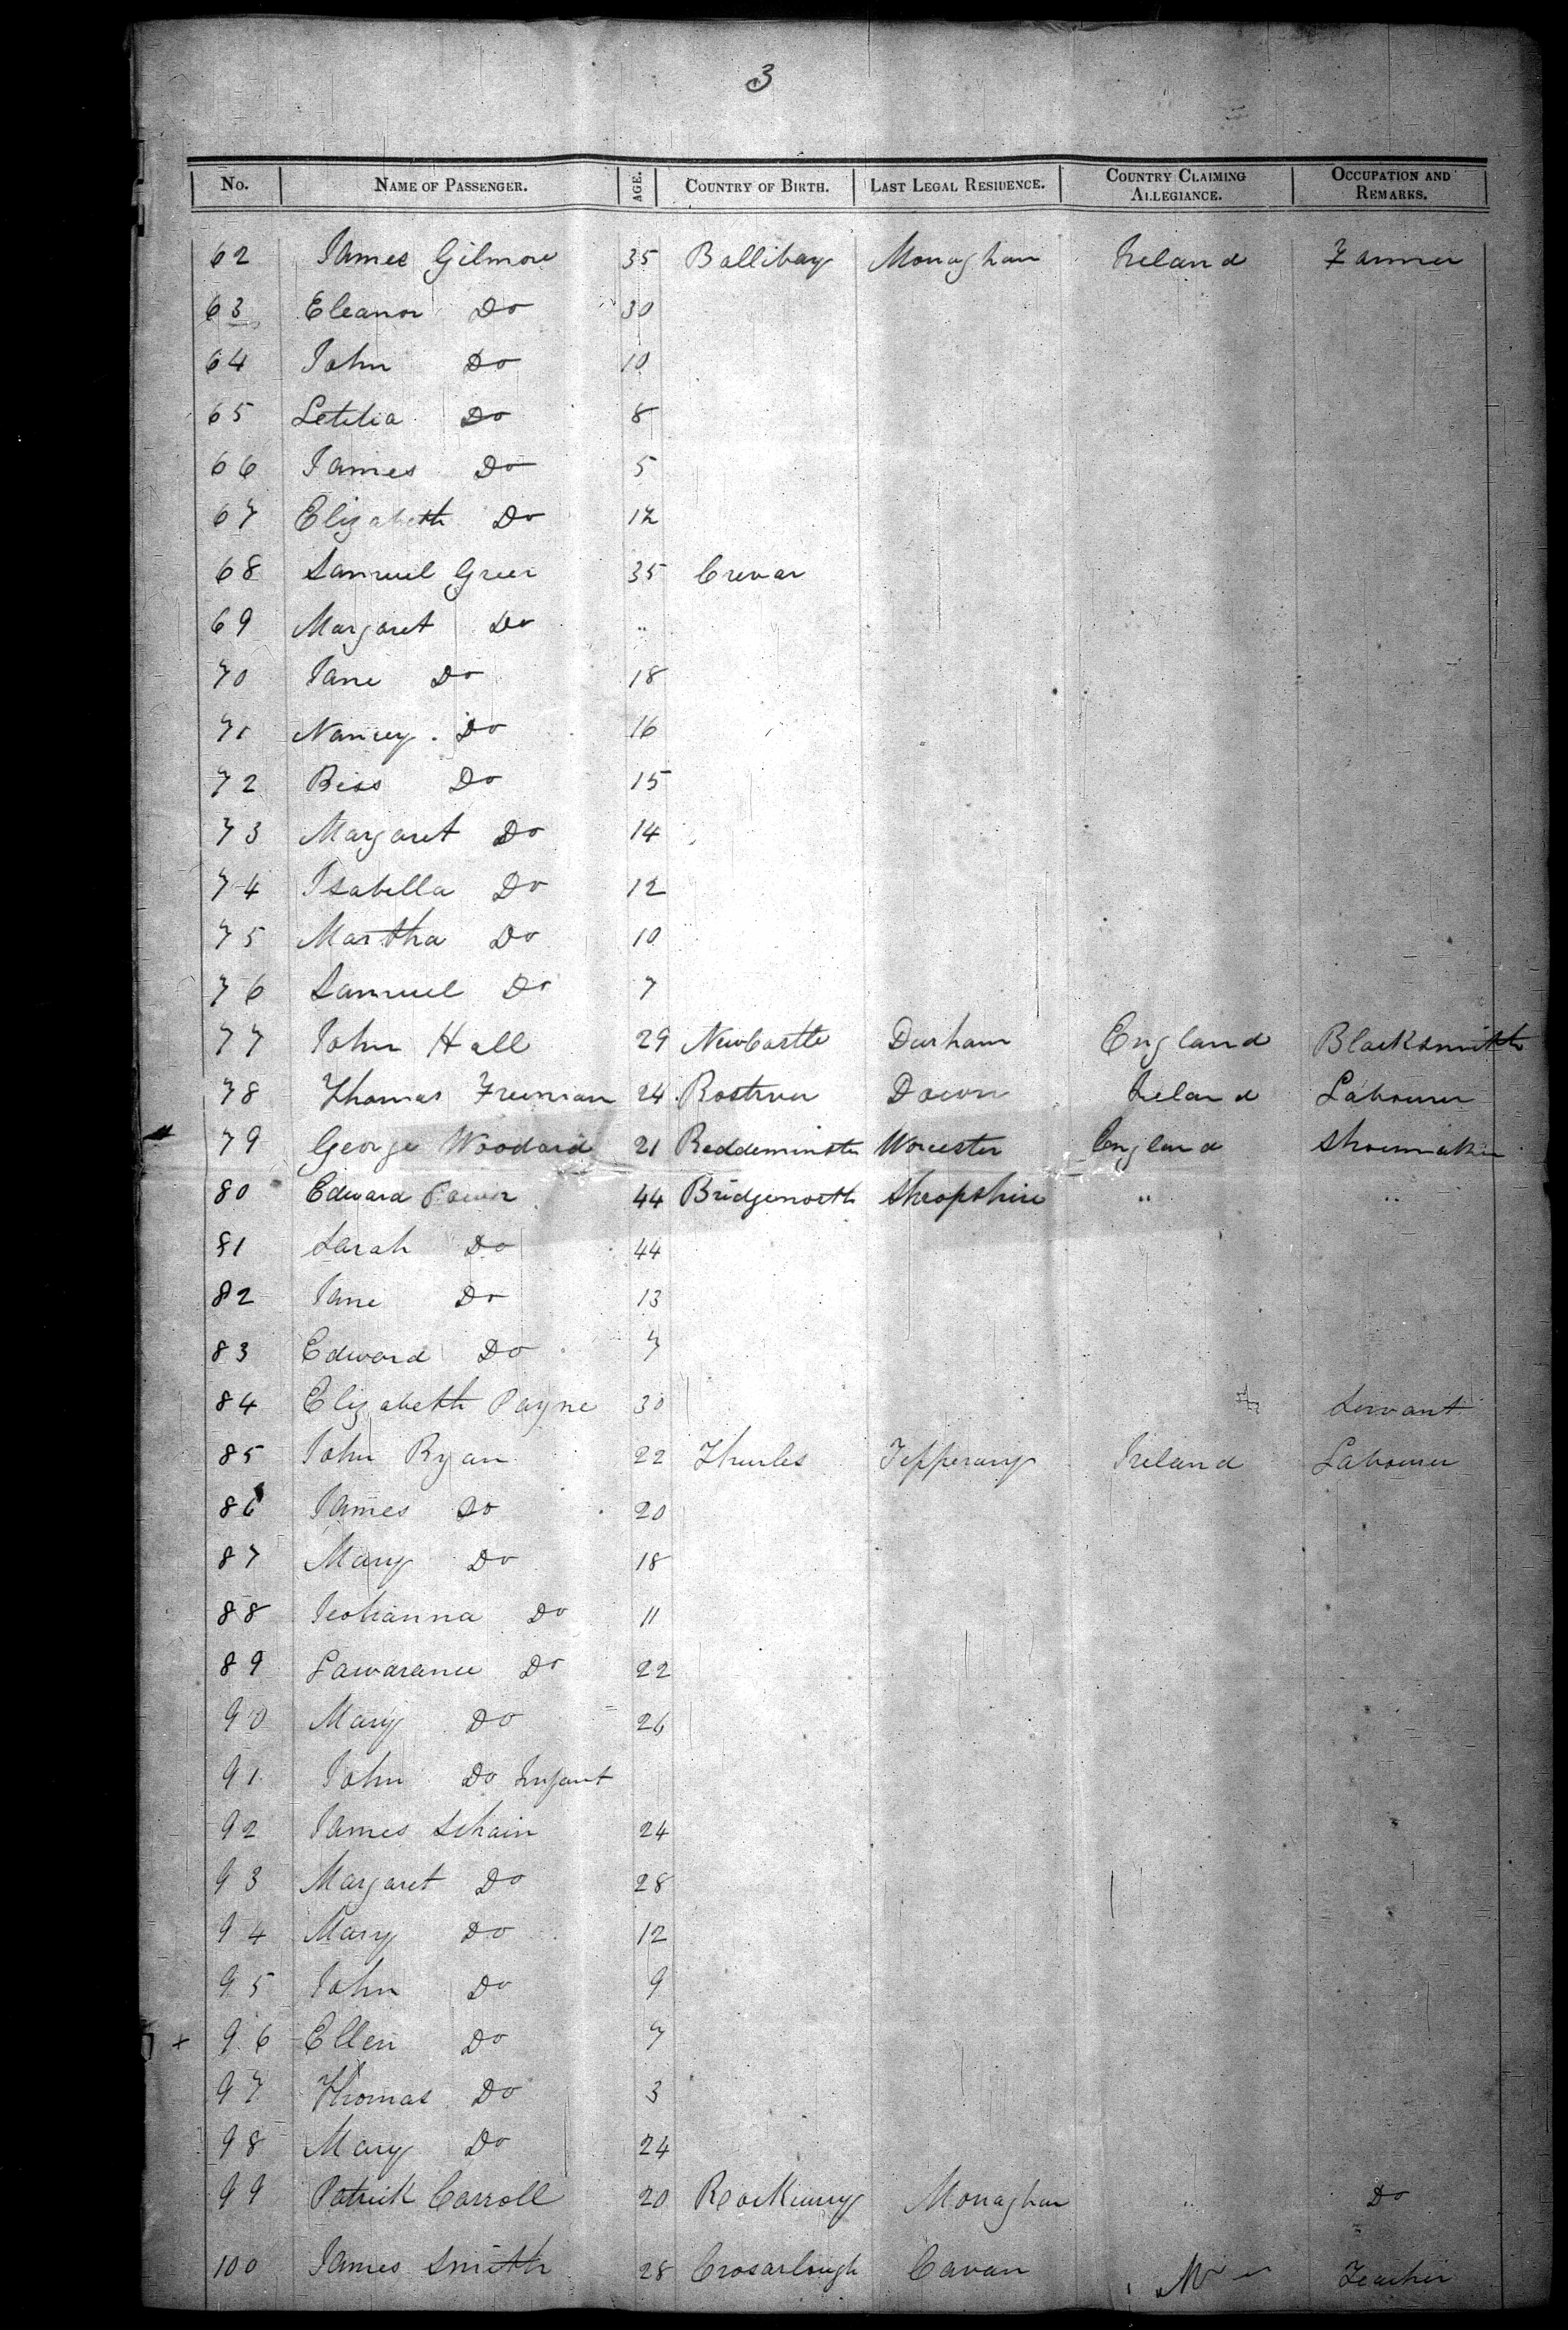 3
No. NAME OF PASSENGER. AGE. COUNTRY OF BIRTH. LAST LEGAL RESIDENCE. COUNTRY CLAIMING ALLEGIANCE. OCCUPATION AND REMARKS.
62 James Gilmore 35 Ballibay Monaghan Ireland Farmer
63 Eleanor Do 30
64 John Do 10
65 Letitia Do 8
66 James Do 5
67 Elizabeth Do 12
68 Samuel Greer 35 Crevar
69 Margaret Do "
70 Jane Do 18
71 Nancy Do 16
72 Bess Do 15
73 Margaret Do 14
74 Isabella Do 12
75 Martha Do 10
76 Samuel Do 7
77 John Hall 29 NewCastle Durham England Blacksmith
78 Thomas Freeman 24 Rostrver Down Ireland Labourer
79 George Woodard 21 Reddeminster Worcester England Shoemaker
80 Edward 44 Bridgenorth Shropshire " "
81 Sarah Do 44
82 Jane Do 13
83 Edward Do 7
84 Elizabeth Payne 30 Servant
85 John Ryan 22 Thurles Tipperary Ireland Labourer
86 James Do 20
87 Mary Do 18
88 Johanna Do 11
89 Lawarance Do 22
90 Mary Do 26
91 John Do Infant
92 James 24
93 Margaret Do 28
94 Mary Do 12
95 John Do 9
+ 96 Ellen Do 7
97 Thomas Do 3
98 Mary Do 24
99 Patrick Carroll 20 Rockcurry Monaghan " Do
100 James Smith 28 Crosarlough Cavan Teacher